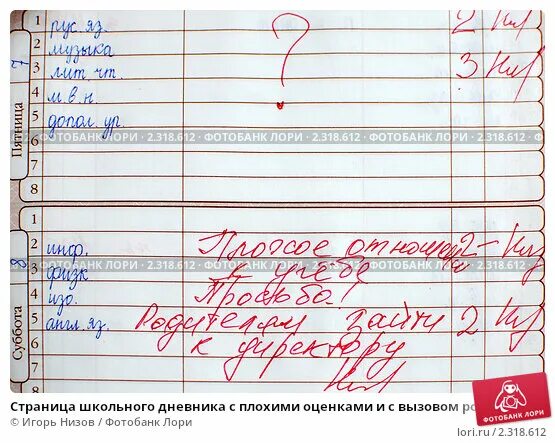 1 рус. яз. 2 Кл
2 музыка ?
3 лит. чт. 3 Кл
4 м.в.н.
5 допол. ур.
6
7
8
Пятница 7
ЛОРИ • 2.318.612 • ФОТОБАНК ЛОРИ • 2.318.612 • ФОТОБАНК ЛОРИ • 2.318.612 • ФОТОБАНК
1
2 инф. Плохое отношение 2 - Кл
3 физк к учёбе
4 изо. Просьба!
5 англ. яз. Родителям зайти 2 Кл
6 к директору
7
8
Суббота 8
ЛОРИ • 2.318.612 • ФОТОБАНК ЛОРИ • 2.318.612 • ФОТОБАНК ЛОРИ • 2.318.612 • ФОТОБАНК
Страница школьного дневника с плохими оценками и с вызовом ро
© Игорь Низов / Фотобанк Лори
ФОТОБАНК ЛОРИ
lori.ru/2.318.612